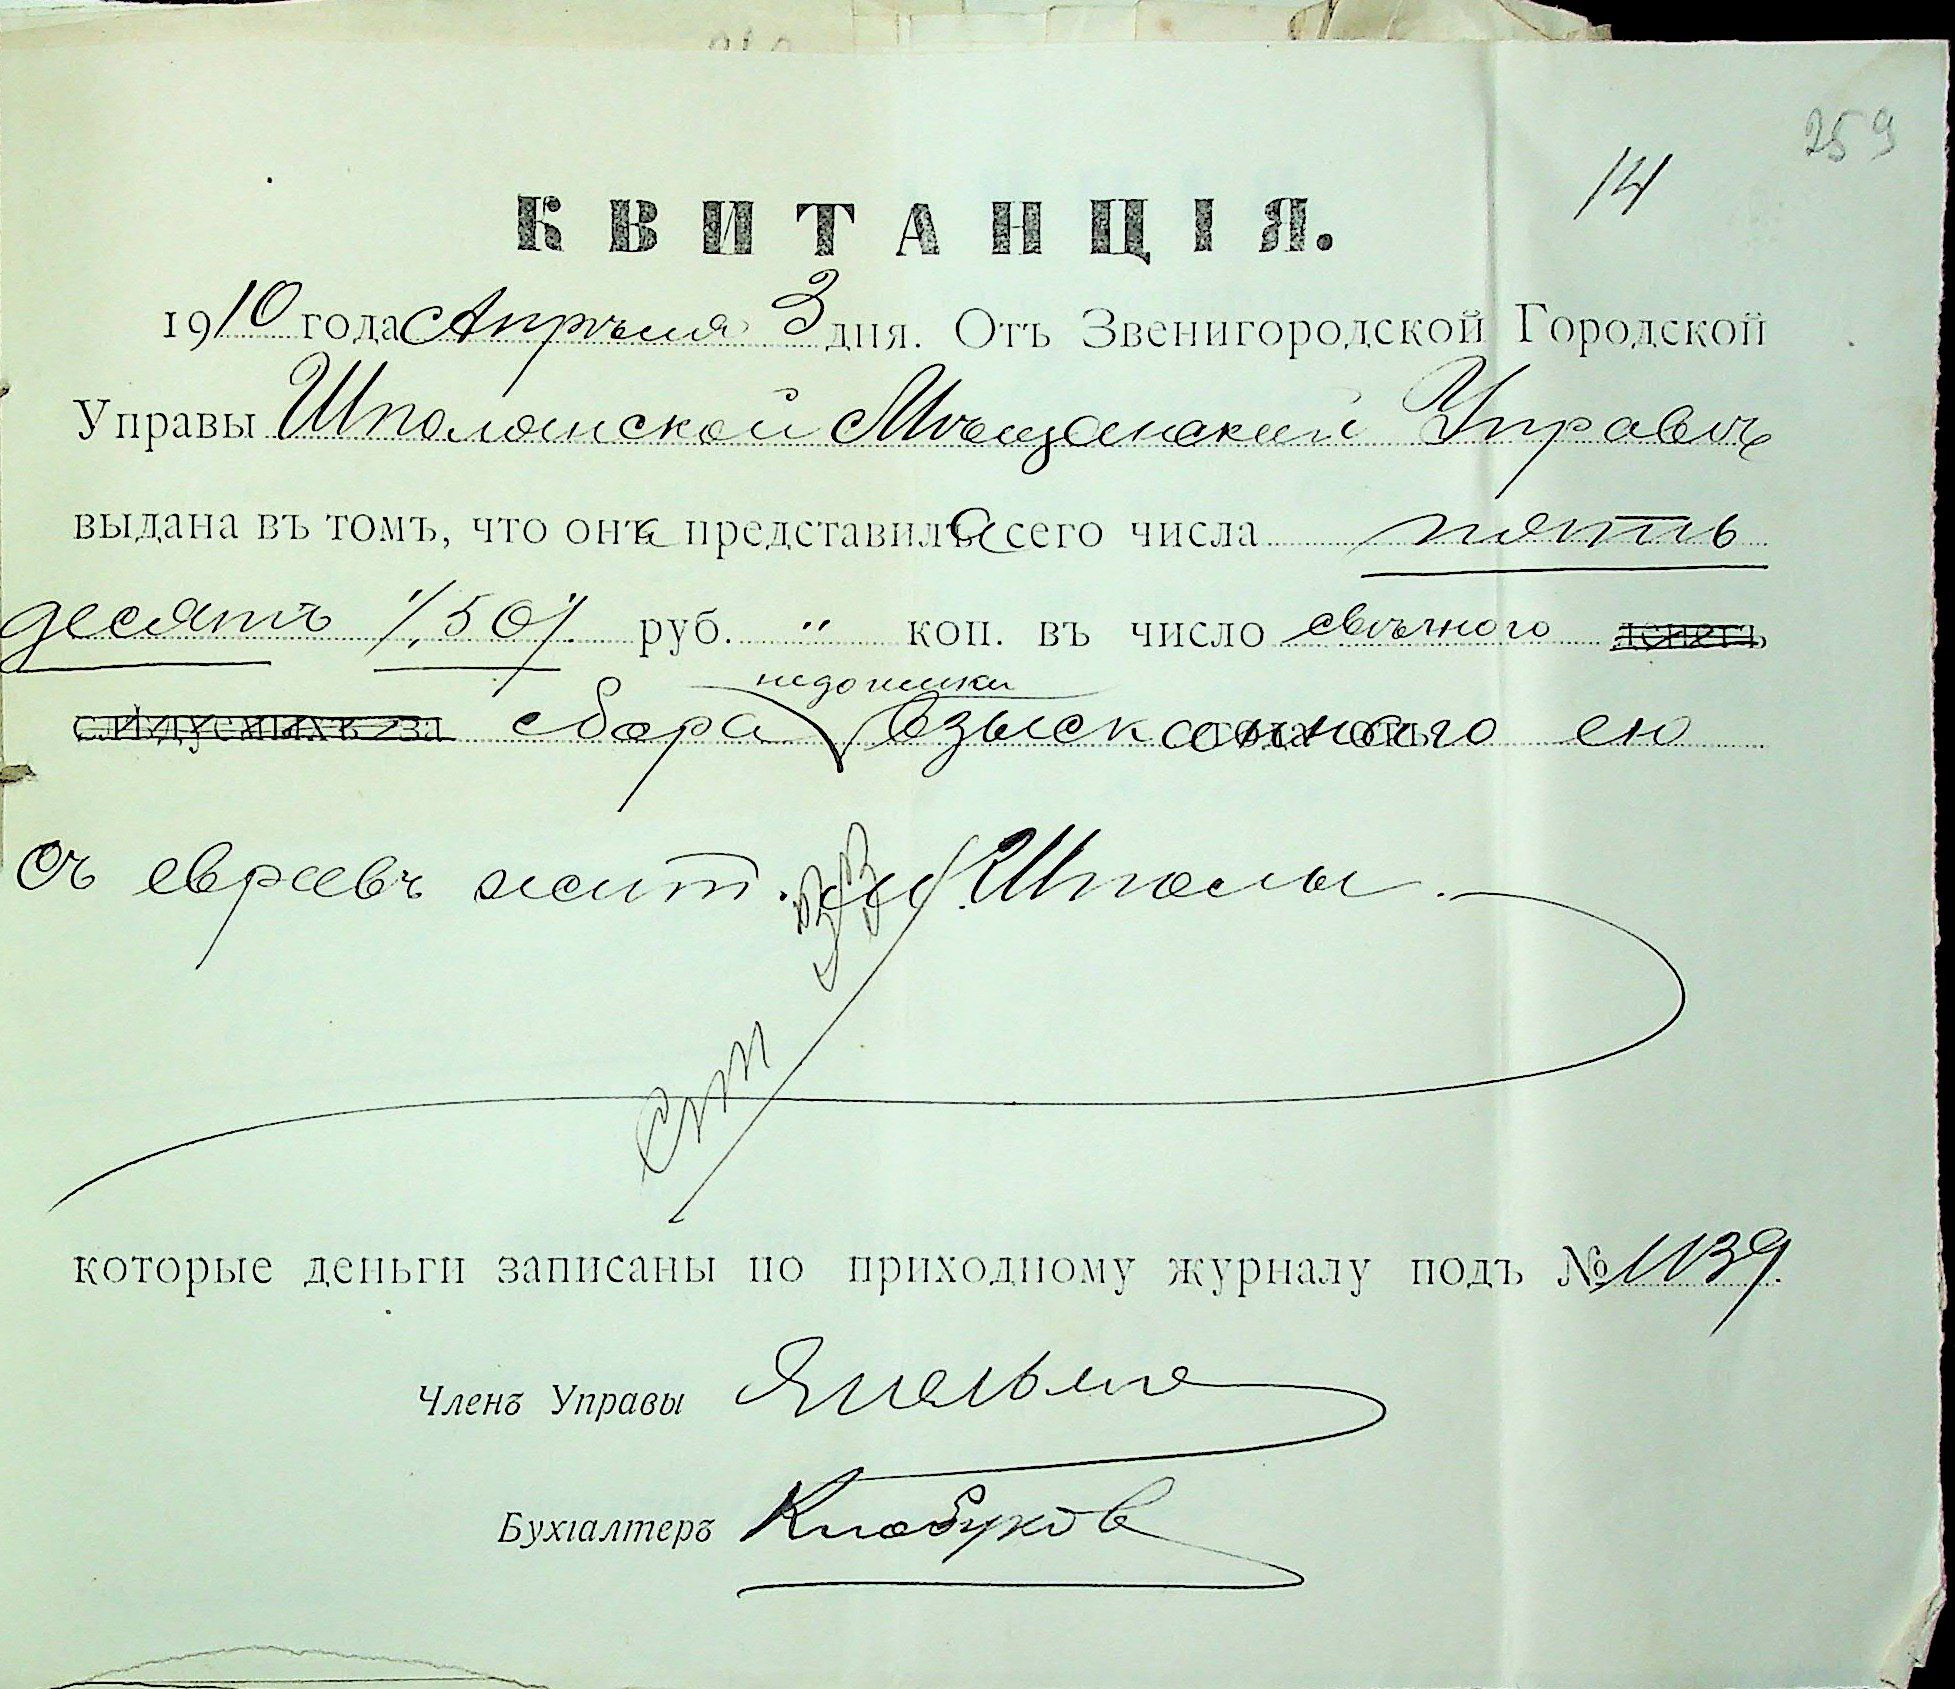 259
14
КВИТАНЦІЯ.
1910 года Апрѣля 3 дня. Отъ Звенигородской Городской
Управы Шполянской Мѣщанской Управѣ
выдана въ томъ, что она представила сего числа пять
десятъ /"50"/ руб. " коп. въ число свѣчного денегъ
недоимки
слѣдуемыхъ за сбора взысканного ею
съ евреевъ жит. м. Шполы.
Ст 33
которые деньги записаны по приходному журналу подъ № 1139.
Членъ Управы
Бухгалтеръ Клобуков